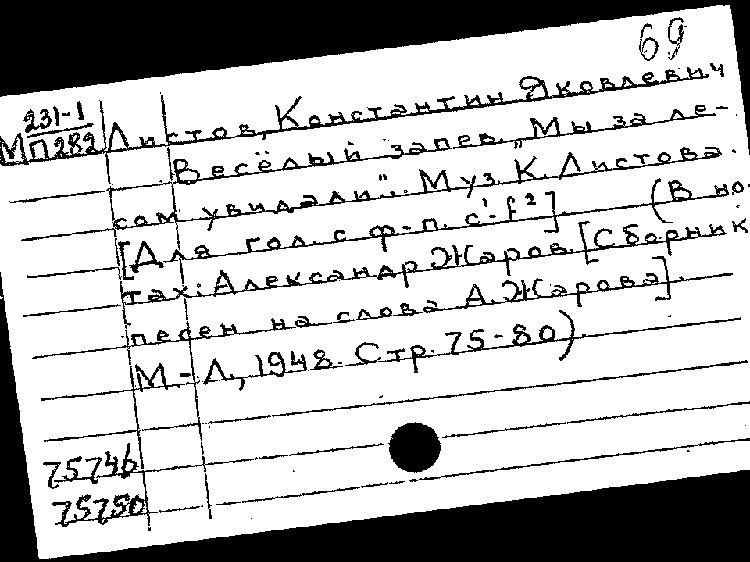 69
231-1
М П282 Листов, Константин Яковлевич
Весёлый запев. „Мы за ле-
сом увидали". Муз. К. Листова.
[Для гол. с ф-п. c¹-f²]. (В но-
тах: Александр Жаров. [Сборник
песен на слова А. Жарова].
М.-Л., 1948. Стр. 75-80).
75746
75750